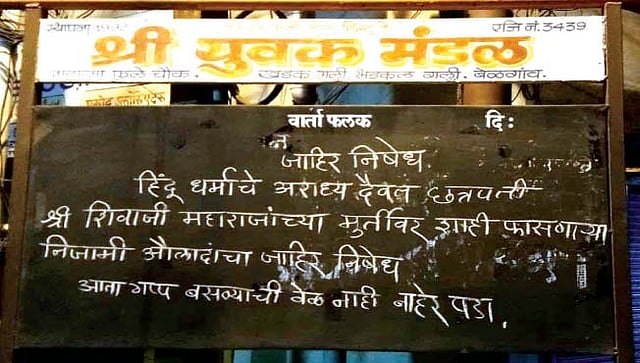 स्थापना रजि नं. 3439
श्री युवक मंडळ
फुले चौक. खडक गल्ली भडकल गल्ली. बेळगांव.
वार्ता फलक दि:
जाहिर निषेध.
हिंदू धर्माचे अराध्य दैवत छत्रपती
श्री शिवाजी महाराजांच्या मुर्तीवर शाही फासणाऱ्या
निजामी औलादांचा जाहिर निषेध
आता गप्प बसण्याची वेळ नाही बाहेर पडा.